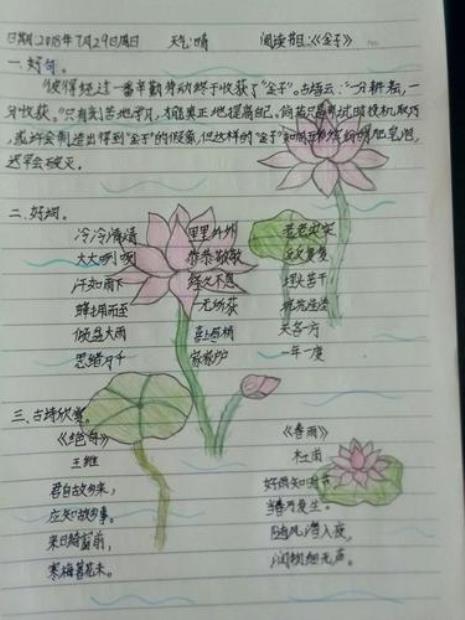 日期:2018年7月29日周日 天气:晴 阅读书目:《金子》
一、好句。
"彼得经过一番辛勤劳动终于收获了"金子"。古语云:"一分耕耘,一
分收获。"只有刻苦地学习,才能真正地提高自己。倘若只靠
或许会制造出得到"金子"的假象,但这样的"金子"如同
迟早会破灭。
二、好词。
冷冷清清 里里外外 老老实实
大大咧咧 恭恭敬敬 反反复复
汗如雨下 经久不息 埋头苦干
蜂拥而至 一无所获 坑坑洼洼
倾盆大雨 喜上眉梢 天各一方
思绪万千 家家户户 一年一度
三、古诗欣赏。
《绝句》 《春雨》
王维 杜甫
君自故乡来, 好雨知时节
应知故乡事。 当春乃发生。
来日绮窗前, 随风潜入夜,
寒梅著花未。 润物细无声。